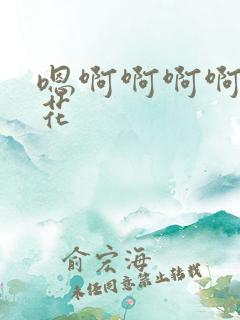 嗯啊啊啊啊
花
俞宏海
未经同意禁止转载